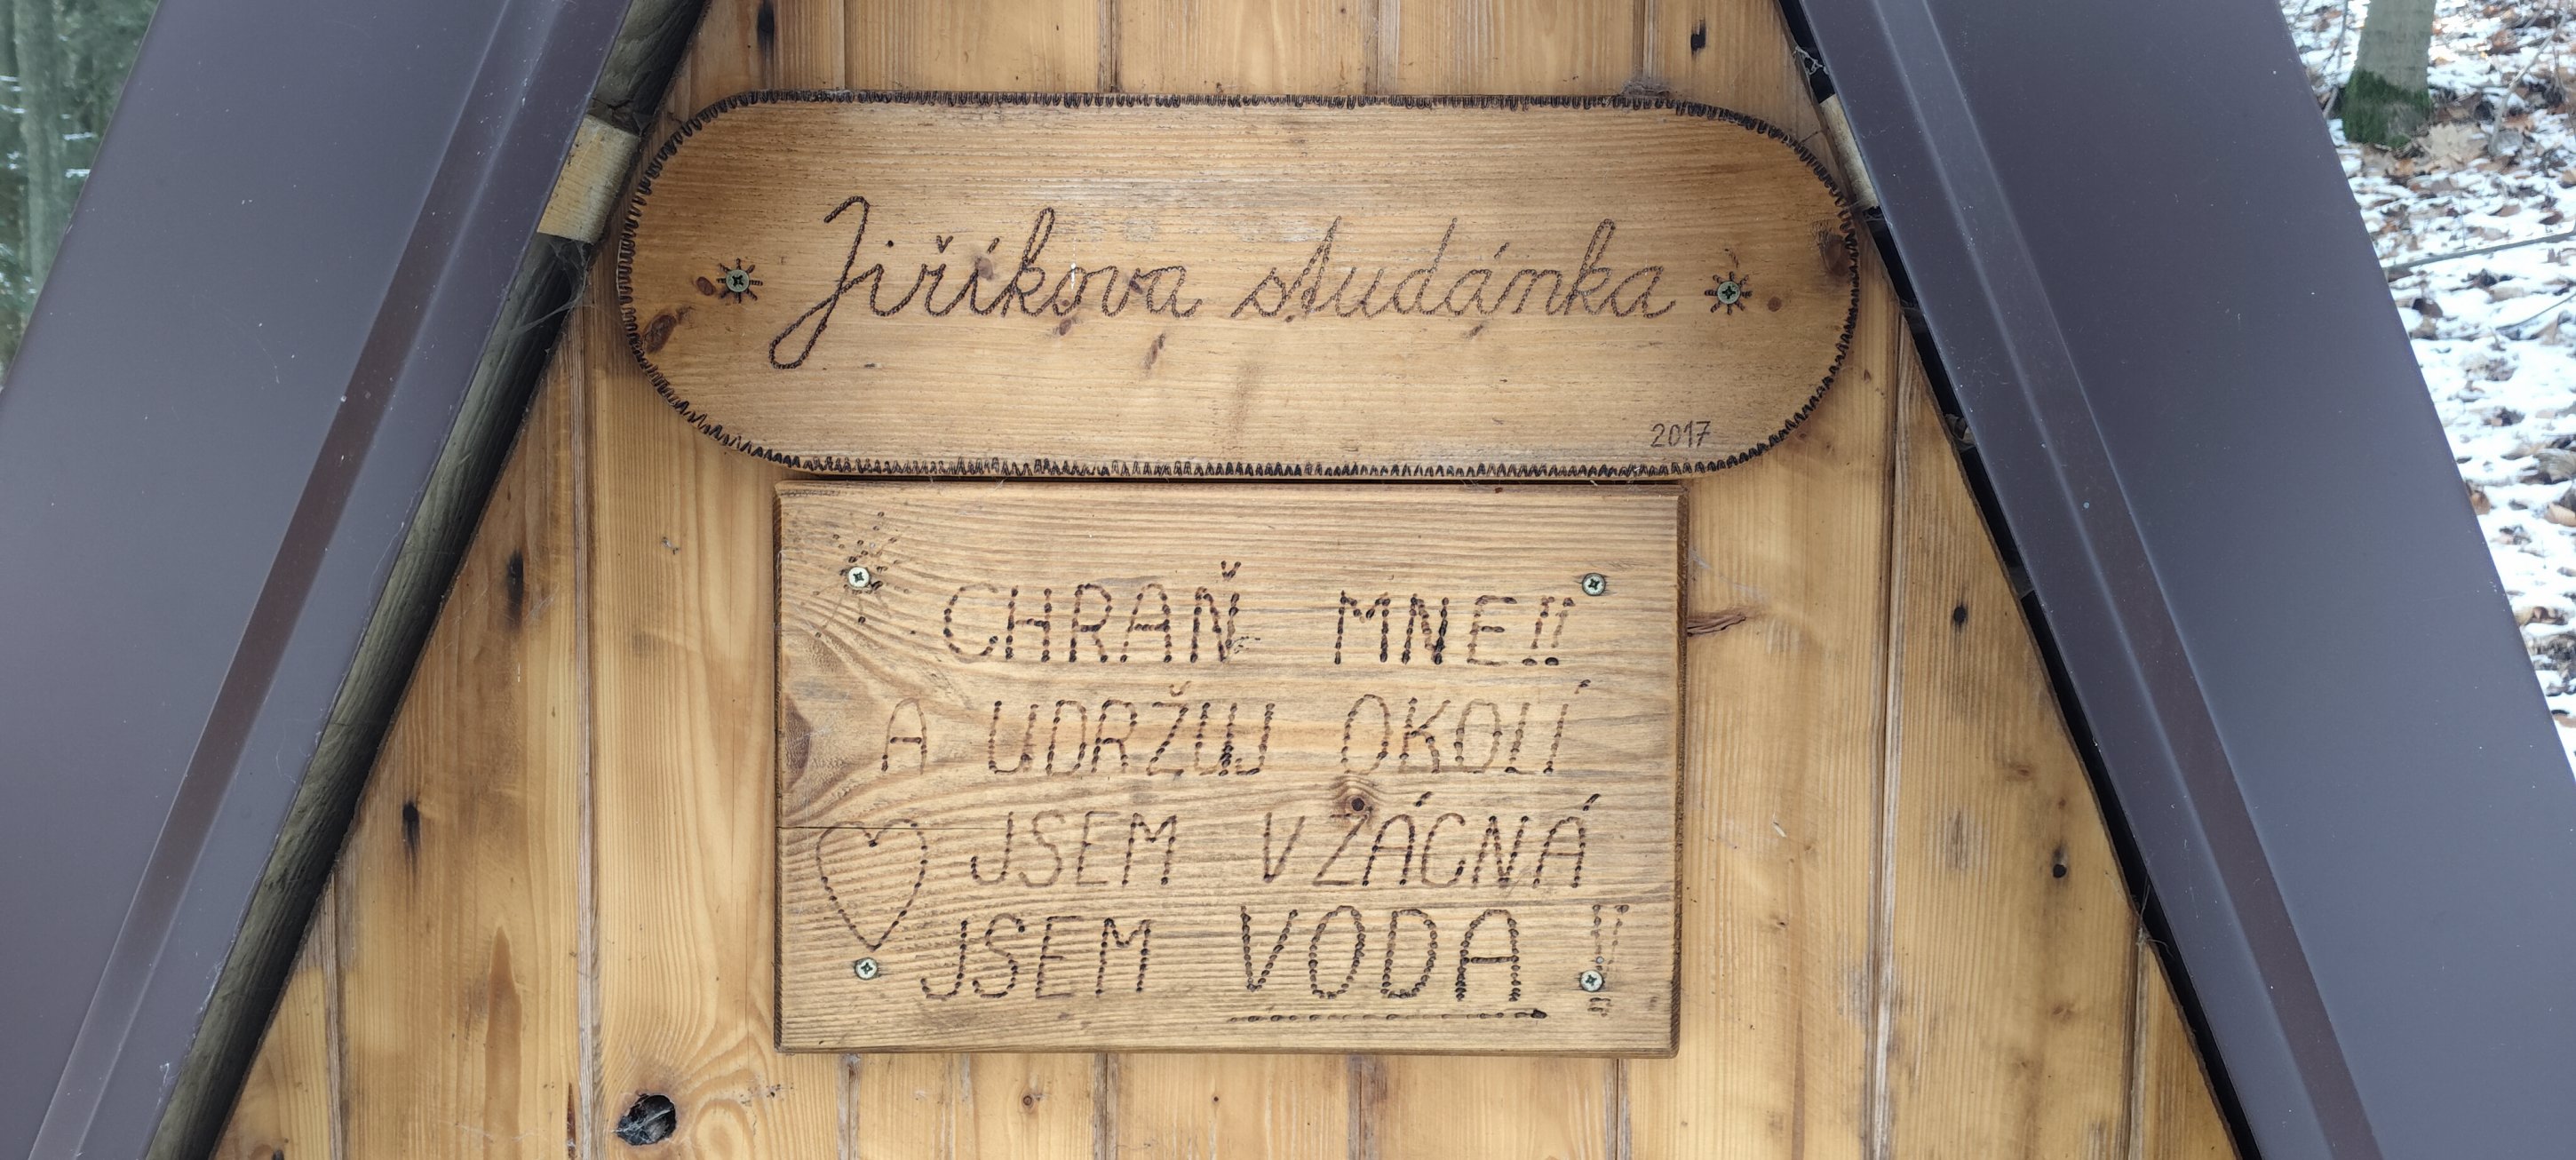 Jiříkova studánka
2017
CHRAŇ MNE!!
A UDRŽUJ OKOLÍ
JSEM VZÁCNÁ
JSEM VODA!!